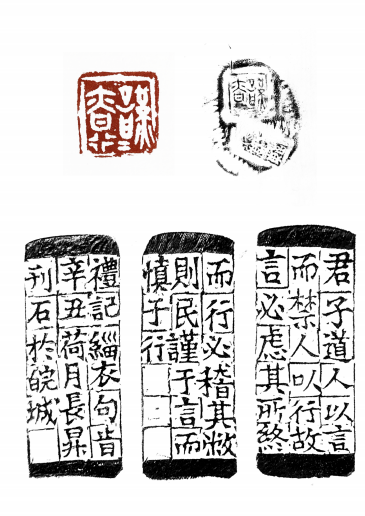 君子道人以言
而禁人以行故
言必慮其所終
而行必稽其敝
則民謹于言而
慎于行
禮記緇衣句旹
辛丑荷月長昇
刊石於皖城